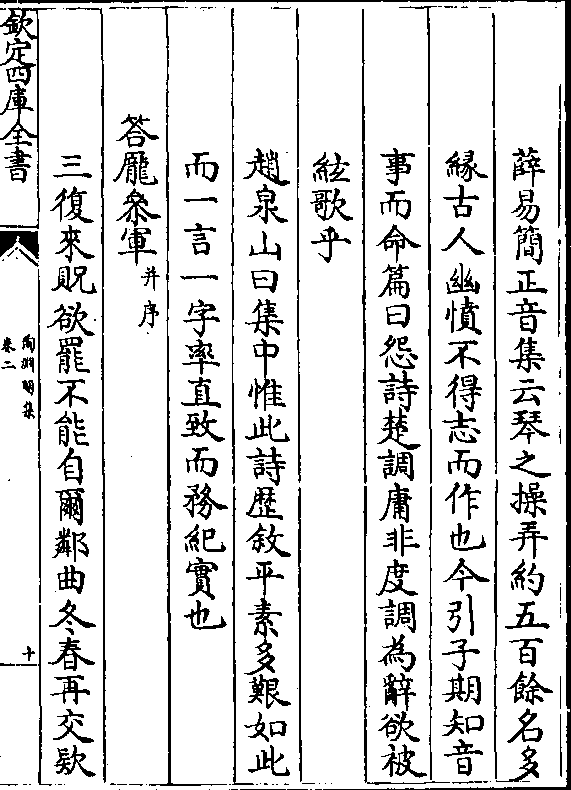 薛易簡正音集云琴之操弄約五百餘名多
緣古人幽憤不得志而作也今引子期知音
事而命篇曰怨詩楚調庸非度調為辭欲被
絃歌乎
趙泉山曰集中惟此詩歴敘平素多艱如此
而一言一字率直致而務紀實也
答龎叅軍并序
三復來貺欲罷不能自爾鄰曲冬春再交欵
欽定四庫全書
陶淵明集
卷二
十